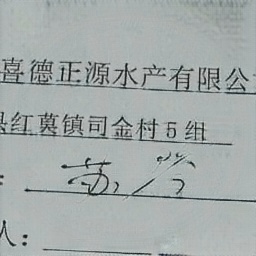 喜德正源水产有限公
县红莫镇司金村5组
:
人：